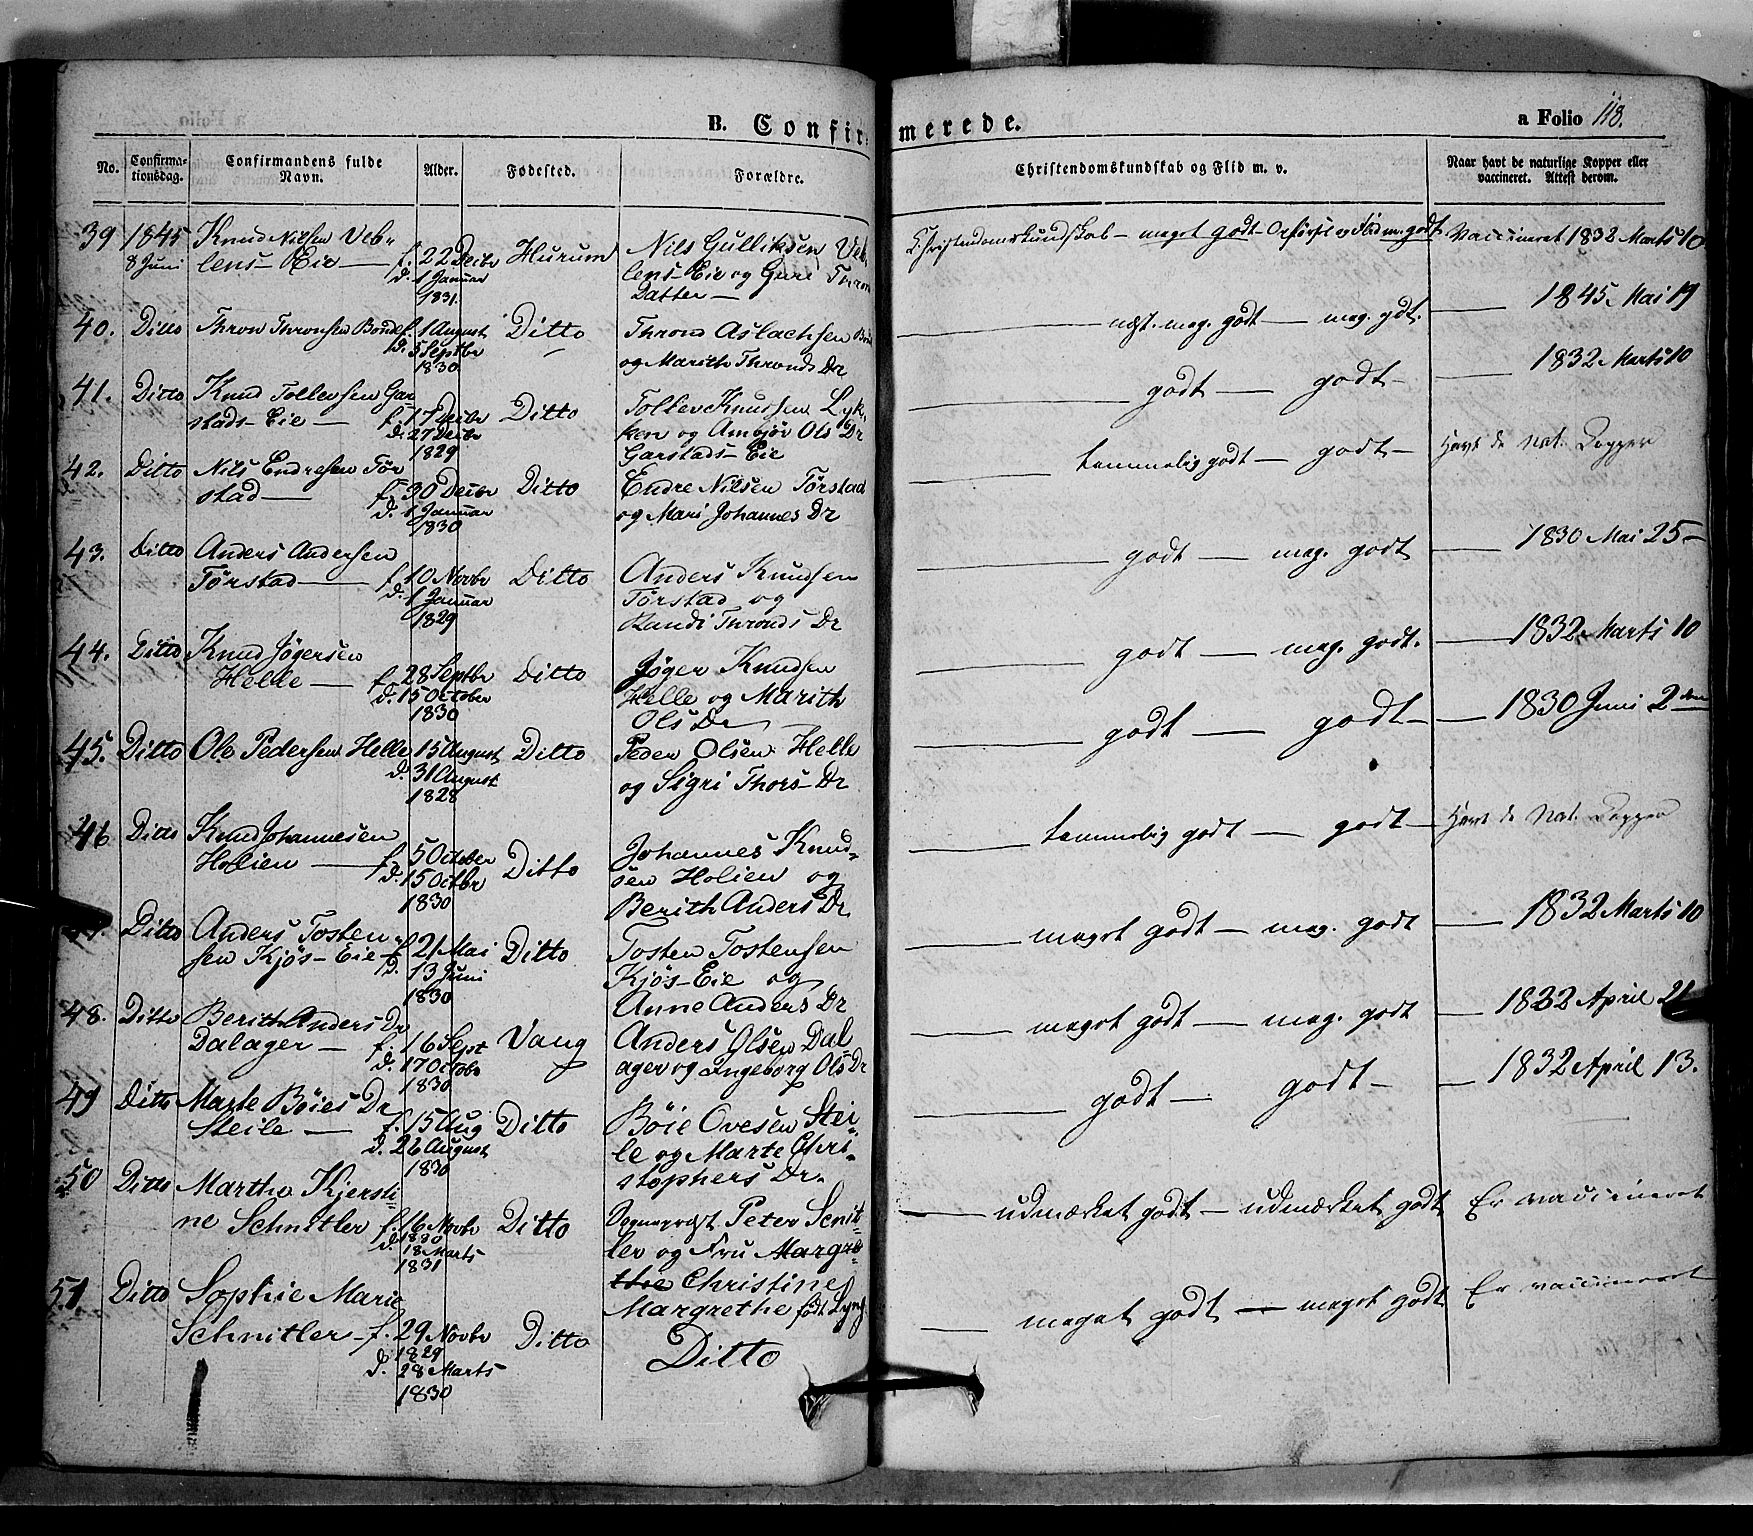 B. Confirmerede.
a Folio 118.
No. Confirmationsdag. Confirmandens fulde Navn. Alder. Fødested. Forældre. Christendomskundskab og Flid m. v. Naar havt de naturlige Kopper eller vaccineret. Attest derom.
39 1845 Knud Nilsen Veb-
8 Juni lens-Eie — f. 22 Decbr Hurum Nils Gulliksen Veb-
d. 1 Januar lens-Eie og Guri Thron
1831. Datter —
Christendomskundskab — meget godt — og Flid m. godt Vaccineret 1832 Marts 10
40. Ditto Thron Thronsen Bønde f. 1 August Ditto Thrond Aslachsen
d. 5 Septbr og Marith Thronds Dr
1830
— næst. meg. godt — meg. gdt. — 1845 Mai 19
41. Ditto Knud Tollevsen Gar
stads-Eie — f. 17 Decbr Ditto Tollev Knudsen Lyk-
d. 27 Decbr ken og Ambjør Ols Dr
1829 Garstads-Eie
— godt — godt — 1832 Marts 10
42. Ditto Nils Endresen Tør
stad — f. 30 Decbr Ditto Endre Nilsen Tørstad
d. 1 Januar og Mari Johannes Dr
1830
— temmelig godt — godt — Havt de Nat. Kopper
43. Ditto Anders Andersen
Tørstad — f. 10 Novbr Ditto Anders Knudsen
d. 1 Januar Tørstad og
1829 Randi Thronds Dr
— godt — meg. godt — 1830 Mai 25 —
44. Ditto Knud Jøgersen
Helle — f. 28 Septbr Ditto Jøger Knudsen
d. 15 October Helle og Marith
1830 Ols Dr
— godt — meg. godt. — 1832 Marts 10
45. Ditto Ole Pedersen Helle 15 August Ditto Peder Olsen Helle
d. 31 August og Sigri Thors-Dr
1828
— godt — godt — 1830 Juni 2den
46 Ditto Knud Johannesen
Holien — f. 5 October Ditto Johannes Knud-
d. 15 Octbr sen Holien og
1830 Berith Anders Dr
— temmelig godt — godt — Havt de Nat. Kopper
Ditto Anders Tosten-
sen Kjøs-Eie f. 21 Mai Ditto Tosten Tostensen
d. 13 Juni Kjøs-Eie og
1830 Anne Anders Dr
— meget godt — meg. godt — 1832 Marts 10
48. Ditto Berith Anders Dr
Dalager — f. 16 Sept Vang Anders Olsen Dal
d. 17 Octobr ager og Ingeborg Ols Dr
1830
— meget godt — meg. godt — 1832 April 21
49 Ditto Marte Bøies Dr
Steile — f. 15 Aug Ditto Bøie Ovesen Stei-
d. 26 August le og Marte Chri-
1830 stophers Dr.
— godt — godt — 1832 April 13.
50 Ditto Martha Kjersti-
ne Schnitler f. 16 Novbr Ditto Sognepræst Peter Scnit-
1830 ler og Fru Margre-
d. 18 Marts
1831 thie Christine
Margrethe født Lyng
— udmærket godt — udmærket godt Er vaccineret
51. Ditto Sophie Marie
Schnitler — f. 29 Novbr Ditto Ditto
1829
d. 28 Marts
1830
— meget godt — meget godt Er vaccineret